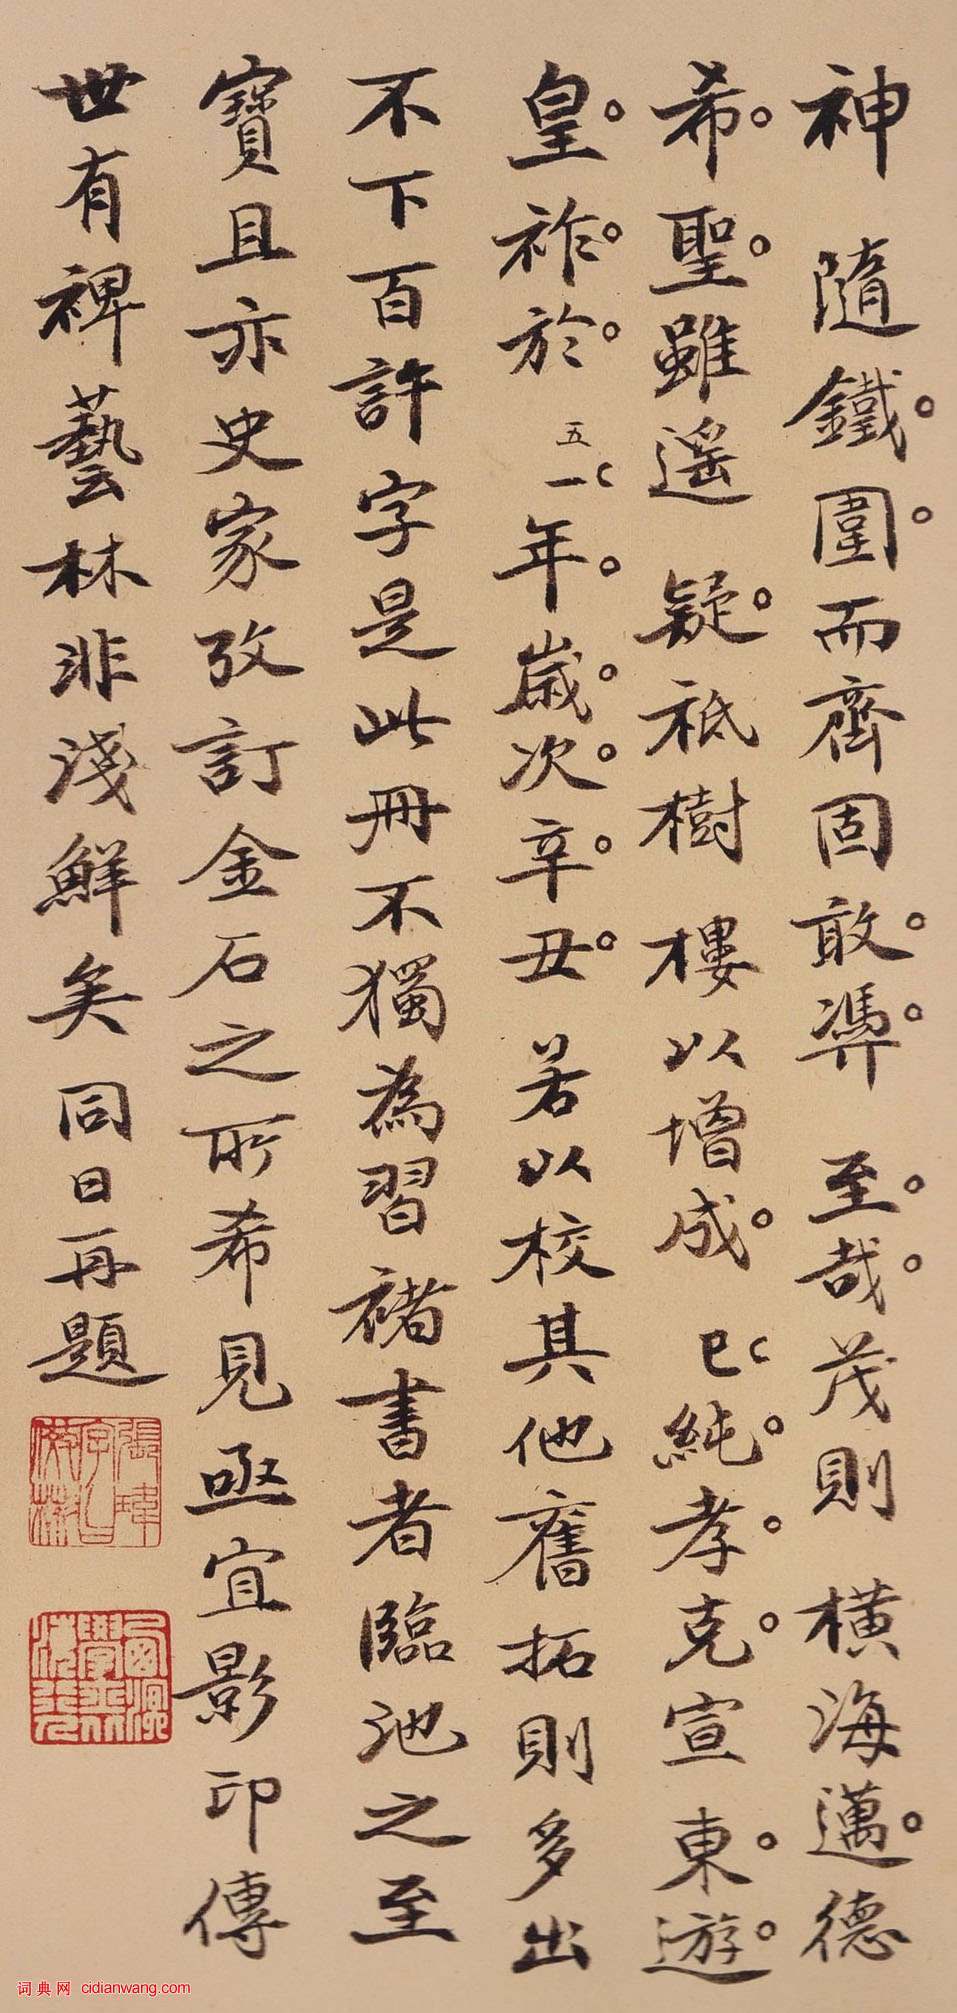 神 隨鐵圍而齊固敢憑 至哉茂則 橫海邁德
希聖雖遥 疑祇樹 樓以增成 已純孝克宣東遊
皇祚於 五一年歲次辛丑 若以校其他舊拓則多出
不下百許字是此冊不獨為習褚書者臨池之至
寶且亦史家攷訂金石之所希見亟宜影印傳
世有裨藝林非淺鮮矣 同日再題
词典网 cidianwang.com